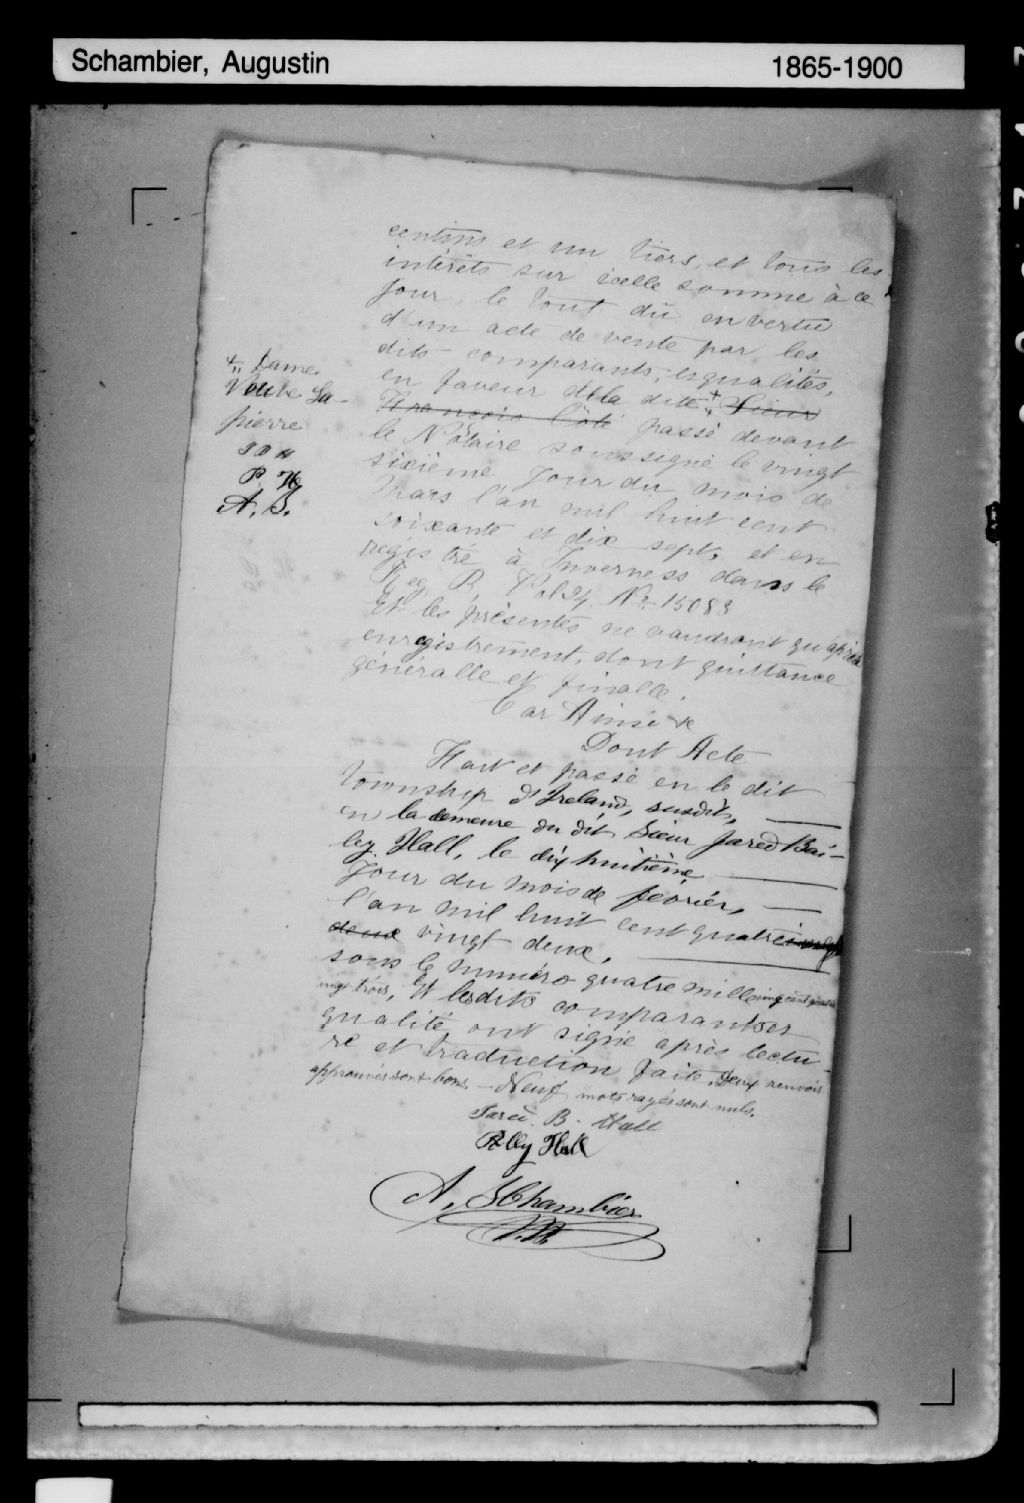 Schambier, Augustin 1865-1900
centins et un tiers, et tous les
intérêts sur icelle somme à ce
jour, le tout dû en vertu
d'un acte de vente par les
dits comparants, esqualités,
en faveur de la dite + Sieur
François Côté passé devant
le Notaire soussigné le vingt
sixième jour du mois de
Mars l'an mil huit cent
soixante et dix sept, et en
régistré à Inverness dans le
Reg. B, Vol 24, No 15083
Et les présentes ne vaudront qu'après
enregistrement, dont quittance
généralle et finalle.
Car Ainsi &c
Dont Acte
Fait et passé en le dit
township d'Ireland, susdit,
en la demeure du dit Sieur Jared Bai-
ley Hall, le dix huitième
jour du mois de février,
l'an mil huit cent quatre
deux vingt deux,
sous le numéro quatre mille cinq cent quatre
vingt trois, Et lesdits comparants es
qualité ont signé après lectu-
re et traduction faite. Deux renvois
approuvés sont bons. - Neuf mots rayés sont nuls.
Jared B. Hall
Polly Hall
A. SChambier
N.P.
+ Dame
Veuve La-
pierre
P. H
A. S.